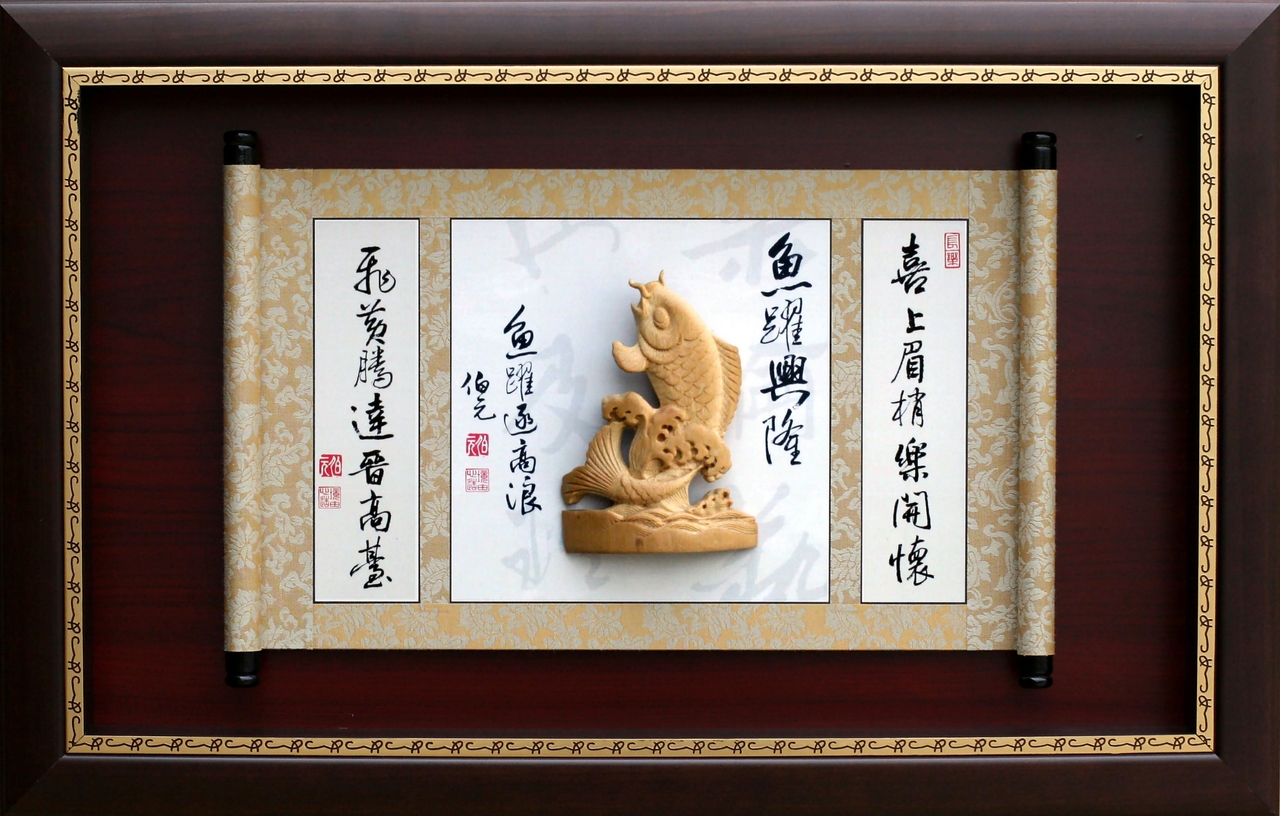 喜上眉梢樂開懷
魚躍興隆
魚躍逐高浪
伯元
飛黃騰達晉高臺
長樂
伯元
伯元